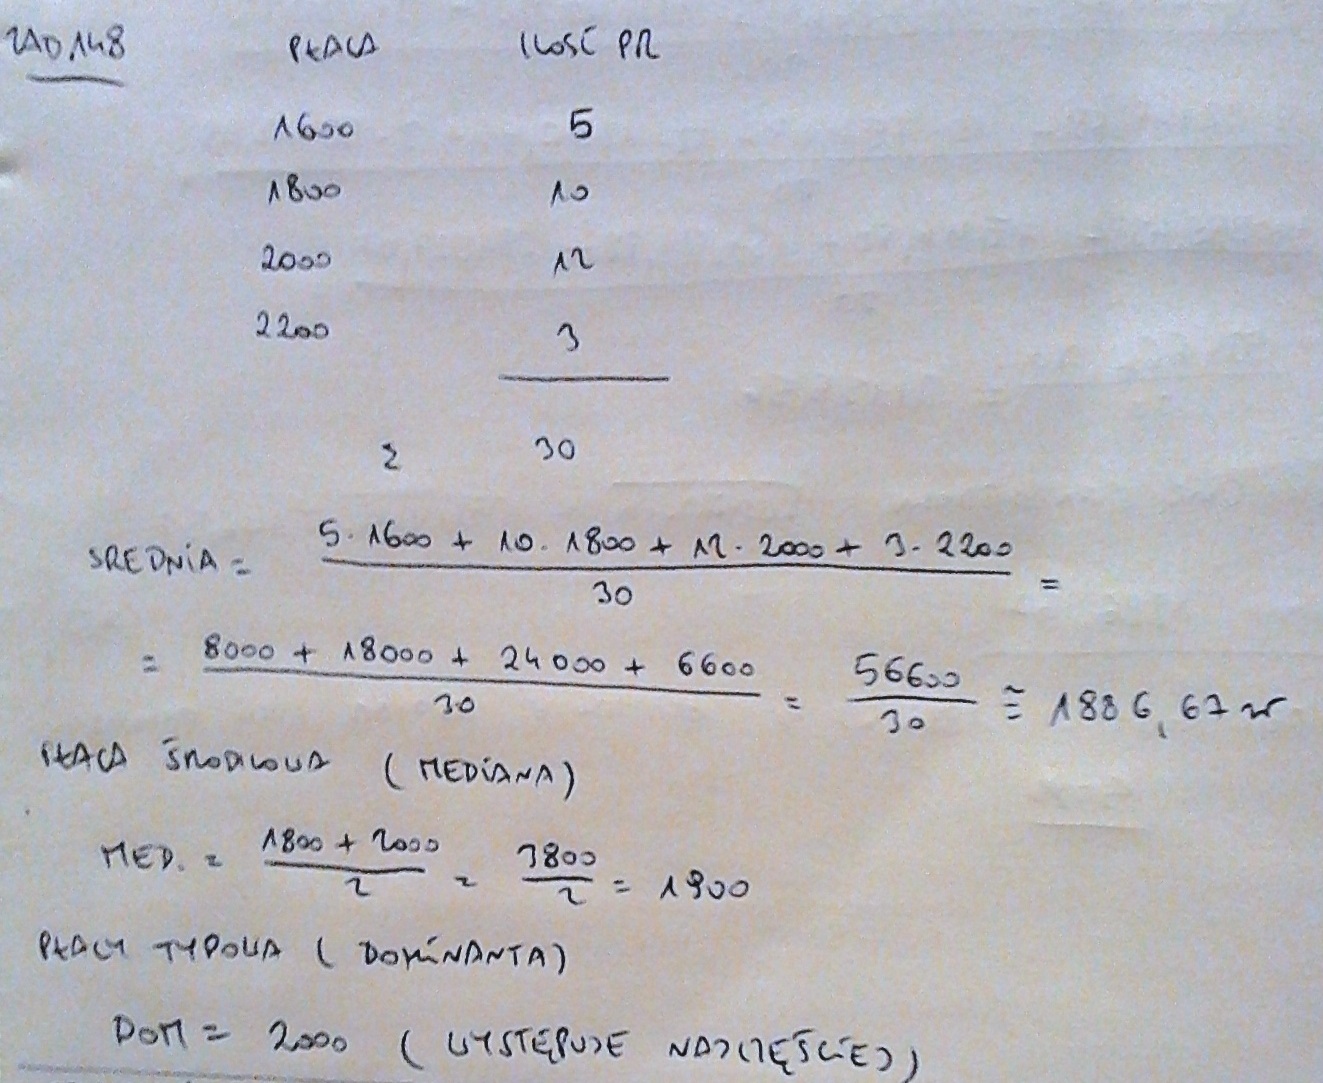 ZAD.148 PŁACA ILOŚĆ PR
1600 5
1800 10
2000 12
2200 3
Σ 30
SREDNIA = 5·1600 + 10·1800 + 12·2000 + 3·2200 / 30 =
= 8000 + 18000 + 24000 + 6600 / 30 = 56600 / 30 ≅ 1886,67 zł
PŁACA ŚRODKOWA (MEDIANA)
MED. = 1800 + 2000 / 2 = 3800 / 2 = 1900
PŁACA TYPOWA (DOMINANTA)
DOM = 2000 (WYSTĘPUJE NAJCZĘŚCIEJ)